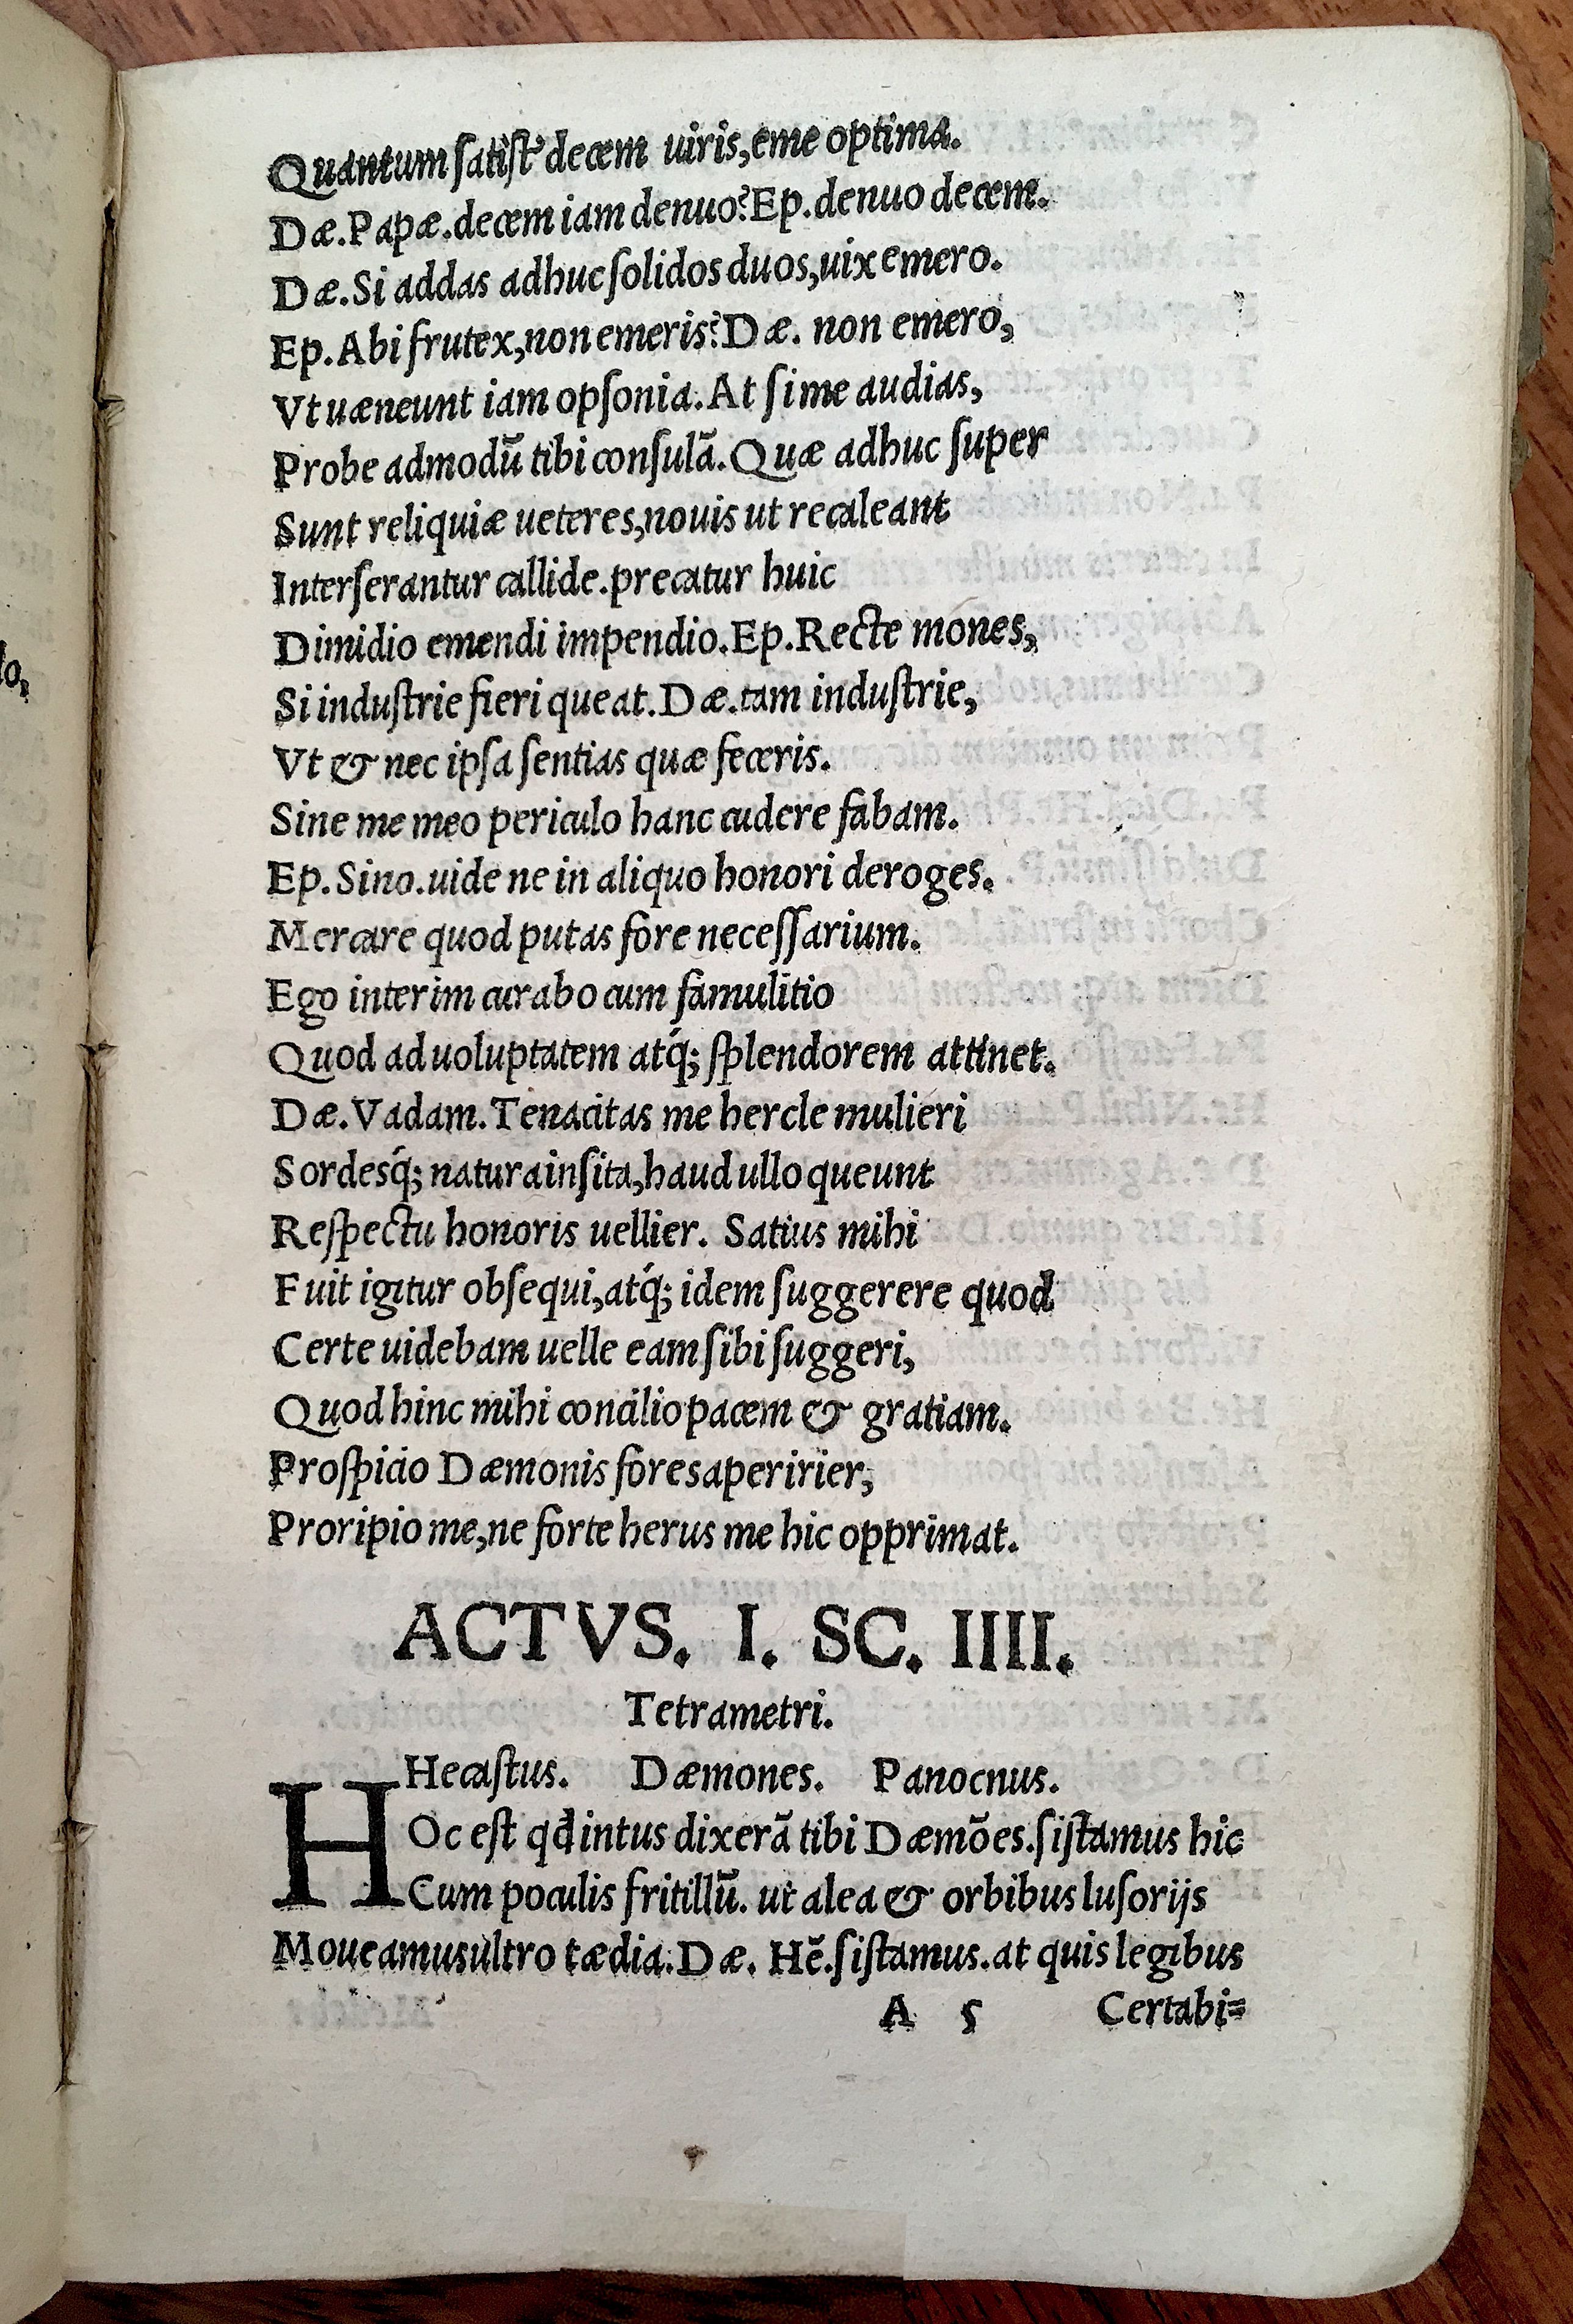 Quantum ſatiſt' decem uiris, eme optima.
Dæ. Papæ. decem iam denuo? Ep. denuo decem.
Dæ. Si addas adhuc ſolidos duos, uix emero.
Ep. Abi frutex, non emeris? Dæ. non emero,
Vt uæneunt iam opſonia. At ſi me audias,
Probe admodū tibi conſulā. Quæ adhuc ſuper
Sunt reliquiæ ueteres, nouis ut recaleant
Interſerantur callide. precatur huic
Dimidio emendi impendio. Ep. Recte mones,
Si induſtrie fieri queat. Dæ. tam induſtrie,
Vt & nec ipſa ſentias quæ feceris.
Sine me meo periculo hanc cudere fabam.
Ep. Sino. uide ne in aliquo honori deroges.
Mercare quod putas fore neceſſarium.
Ego interim curabo cum famulitio
Quod ad uoluptatem atq́; ſplendorem attinet.
Dæ. Vadam. Tenacitas me hercle mulieri
Sordesq́; natura inſita, haud ullo queunt
Reſpectu honoris uellier. Satius mihi
Fuit igitur obſequi, atq́; idem ſuggerere quod
Certe uidebam uelle eam ſibi ſuggeri,
Quod hinc mihi concilio pacem & gratiam.
Proſpicio Dæmonis fores aperirier,
Proripio me, ne forte herus me hic opprimat.
ACTVS. I. SC. IIII.
Tetrametri.
Hecaſtus. Dæmones. Panocnus.
HOc eſt qđ intus dixerā tibi Dæmōes. ſiſtamus hic
Cum poculis fritillū. ut alea & orbibus luſorijs
Moueamus ultro tædia. Dæ. Hē. ſiſtamus. at quis legibus
A 5 Certabi=